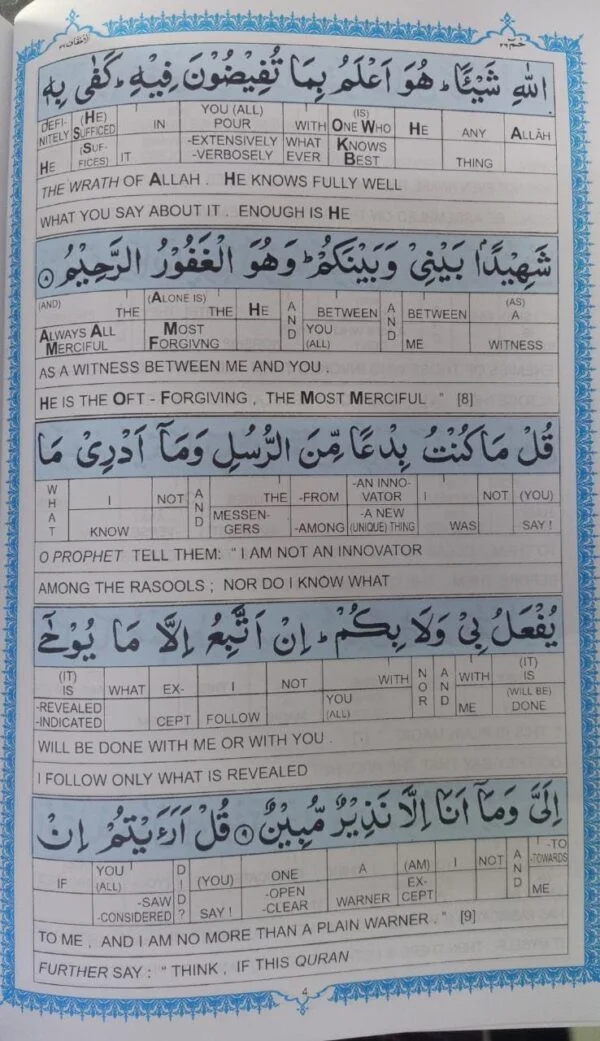 حٰمٓ ٢٦
الاحقاف ٤٦
اللّٰهِ شَيْـًٔاؕ هُوَ اَعْلَمُ بِمَا تُفِيْضُوْنَ فِيْهِؕ كَفٰى بِهٖ
DEFI-NITELY (HE) SUFFICED IN YOU (ALL) POUR WITH (IS) ONE WHO HE ANY ALLÂH
HE (SUF-FICES) IT -EXTENSIVELY -VERBOSELY WHAT EVER KNOWS BEST THING
THE WRATH OF ALLAH . HE KNOWS FULLY WELL
WHAT YOU SAY ABOUT IT . ENOUGH IS HE
شَهِيْدًۢا بَيْنِيْ وَبَيْنَكُمْؕ وَهُوَ الْغَفُوْرُ الرَّحِيْمُ ٨
(AND) THE (ALONE IS) THE HE AND BETWEEN AND BETWEEN (AS) A
ALWAYS ALL MERCIFUL MOST FORGIVNG YOU (ALL) ME WITNESS
AS A WITNESS BETWEEN ME AND YOU .
HE IS THE OFT - FORGIVING , THE MOST MERCIFUL " [8]
قُلْ مَا كُنْتُ بِدْعًا مِّنَ الرُّسُلِ وَمَاۤ اَدْرِيْ مَا
WHAT I NOT AND THE -FROM -AN INNO-VATOR I NOT (YOU)
KNOW MESSEN-GERS -AMONG -A NEW (UNIQUE) THING WAS SAY !
O PROPHET TELL THEM: " I AM NOT AN INNOVATOR
AMONG THE RASOOLS ; NOR DO I KNOW WHAT
يُفْعَلُ بِيْ وَلَا بِكُمْؕ اِنْ اَتَّبِعُ اِلَّا مَا يُوْحٰۤى
(IT) IS WHAT EX- I NOT WITH NOR AND WITH (IT) IS
-REVEALED -INDICATED CEPT FOLLOW YOU (ALL) ME (WILL BE) DONE
WILL BE DONE WITH ME OR WITH YOU .
I FOLLOW ONLY WHAT IS REVEALED
اِلَيَّ وَمَاۤ اَنَا اِلَّا نَذِيْرٌ مُّبِيْنٌ ٩ قُلْ اَرَءَيْتُمْ اِنْ
IF YOU (ALL) DID? (YOU) ONE A (AM) I NOT AND -TO -TOWARDS
-SAW -CONSIDERED SAY ! -OPEN -CLEAR WARNER EX-CEPT ME
TO ME , AND I AM NO MORE THAN A PLAIN WARNER . " [9]
FURTHER SAY : " THINK , IF THIS QURAN
4